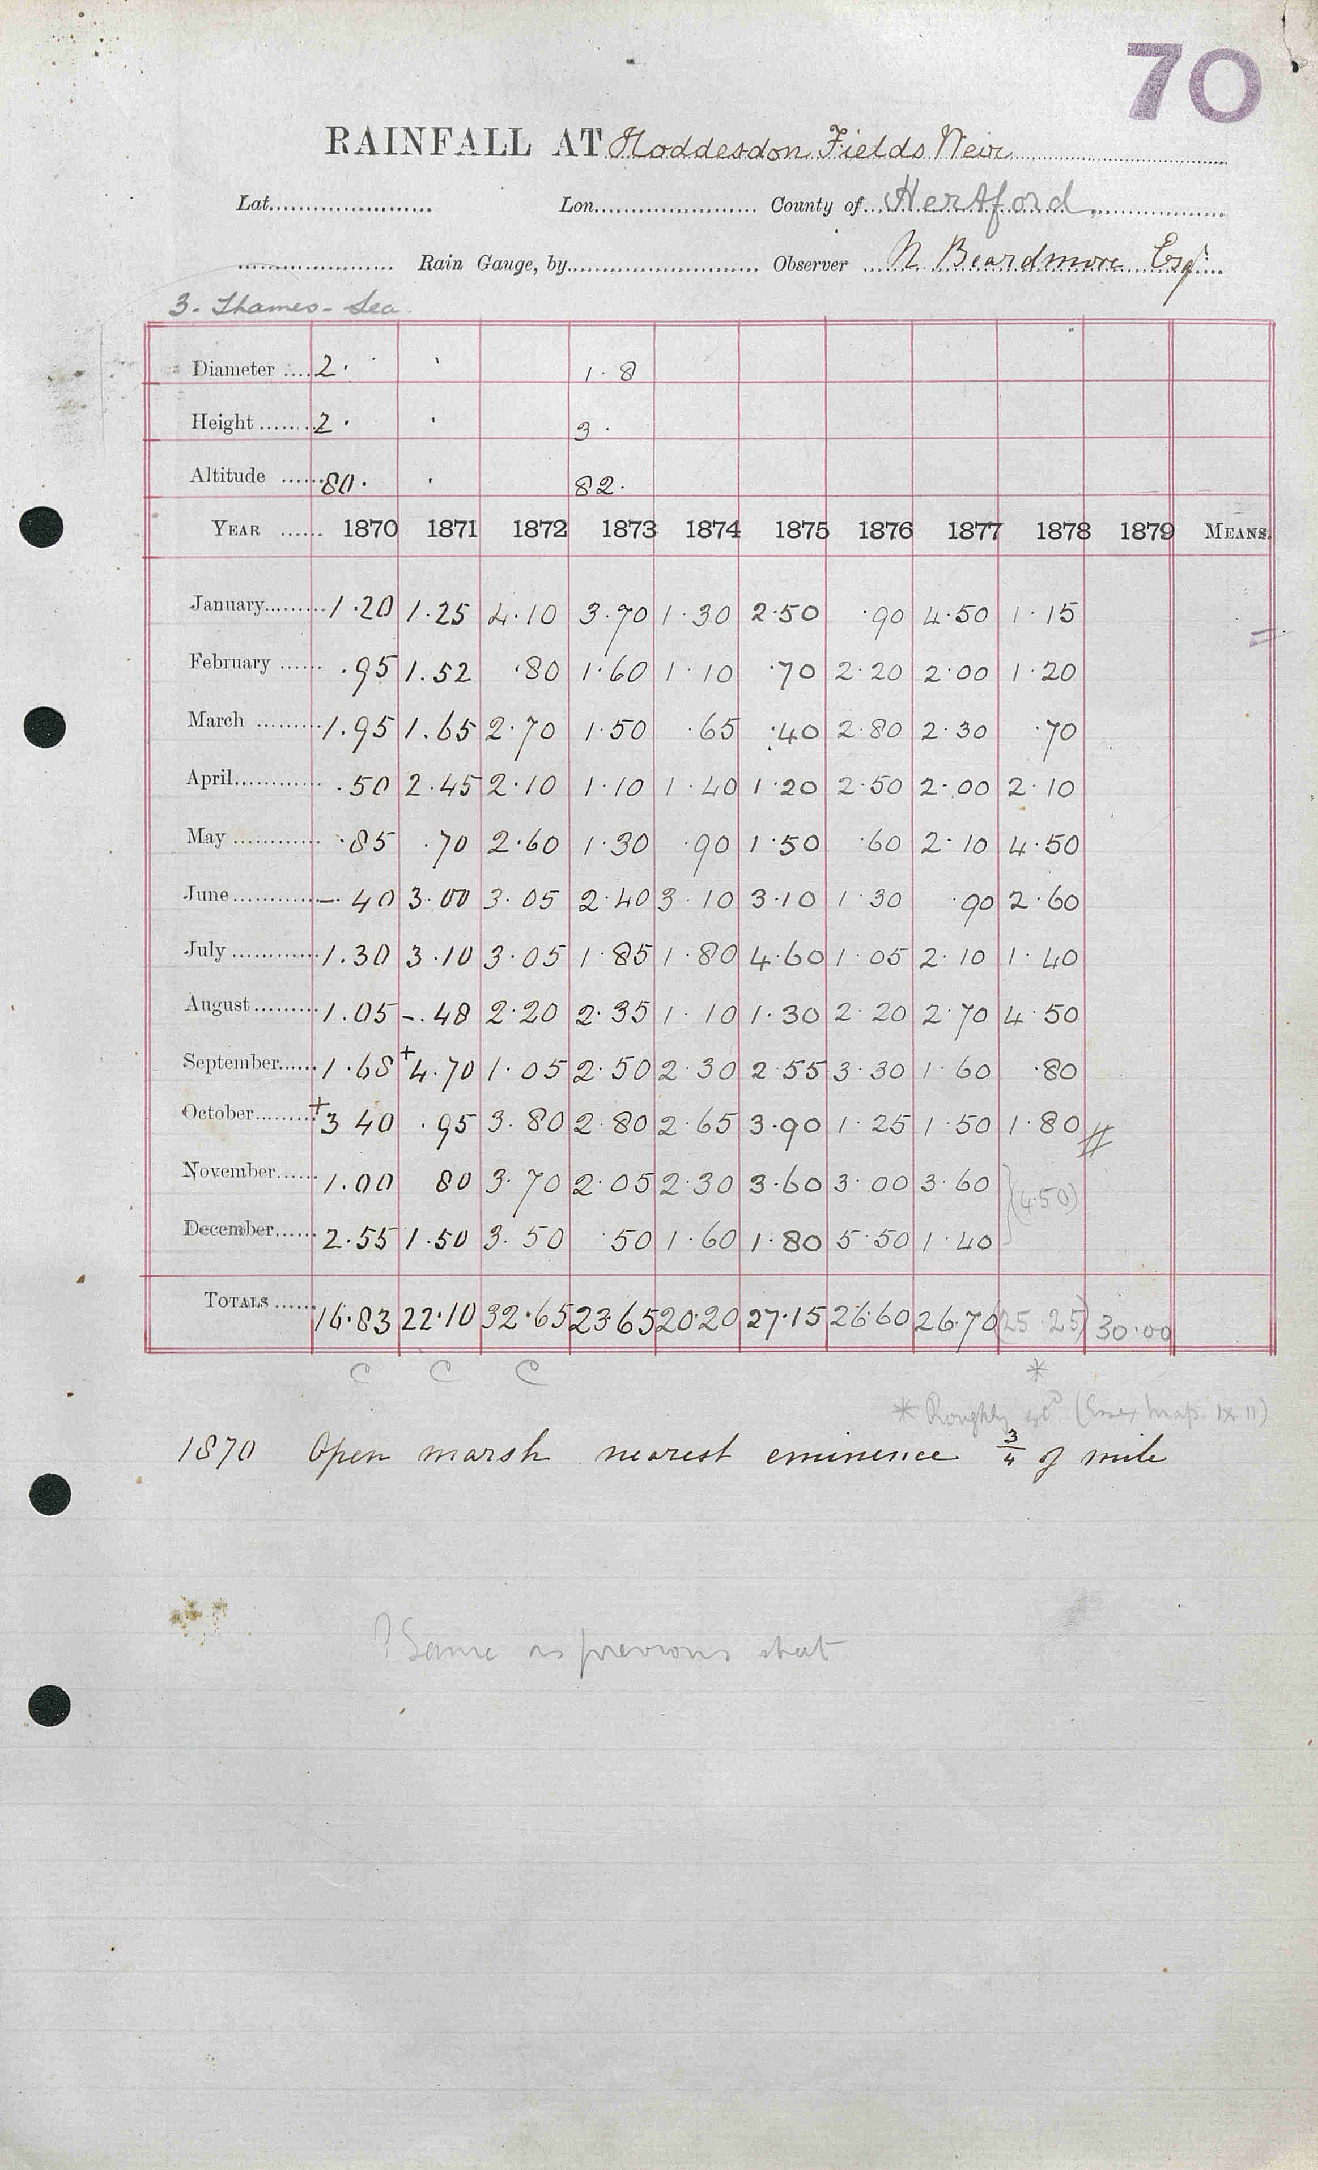 70
RAINFALL AT Hoddesdon Fields Weir
Lat. Lon. County of Hertford
Rain Gauge, by Observer N Beardmore Esqr
3. Thames - Lea
Diameter 2. 1.8
Height 2. 3.
Altitude 80. 82.
YEAR 1870 1871 1872 1873 1874 1875 1876 1877 1878 1879 MEANS.
January 1.20 1.25 4.10 3.70 1.30 2.50 .90 4.50 1.15
February .95 1.52 .80 1.60 1.10 .70 2.20 2.00 1.20
March 1.95 1.65 2.70 1.50 .65 .40 2.80 2.30 .70
April .50 2.45 2.10 1.10 1.40 1.20 2.50 2.00 2.10
May .85 .70 2.60 1.30 .90 1.50 .60 2.10 4.50
June - 40 3.00 3.05 2.40 3.10 3.10 1.30 .90 2.60
July 1.30 3.10 3.05 1.85 1.80 4.60 1.05 2.10 1.40
August 1.05 -.48 2.20 2.35 1.10 1.30 2.20 2.70 4.50
September 1.68 +4.70 1.05 2.50 2.30 2.55 3.30 1.60 .80
October +3 40 .95 3.80 2.80 2.65 3.90 1.25 1.50 1.80 #
November 1.00 80 3.70 2.05 2.30 3.60 3.00 3.60 } (4.50)
December 2.55 1.50 3.50 .50 1.60 1.80 5.50 1.40
TOTALS 16.83 22.10 32.65 23.65 20.20 27.15 26.60 26.70 (25.25) 30.00
C C C *
* Roughly (Essex Map
1870 Open marsh nearest eminence 3/4 of mile
? Same as previous sheet